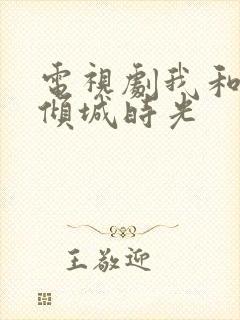 電視劇我和
傾城時光
王敬迎